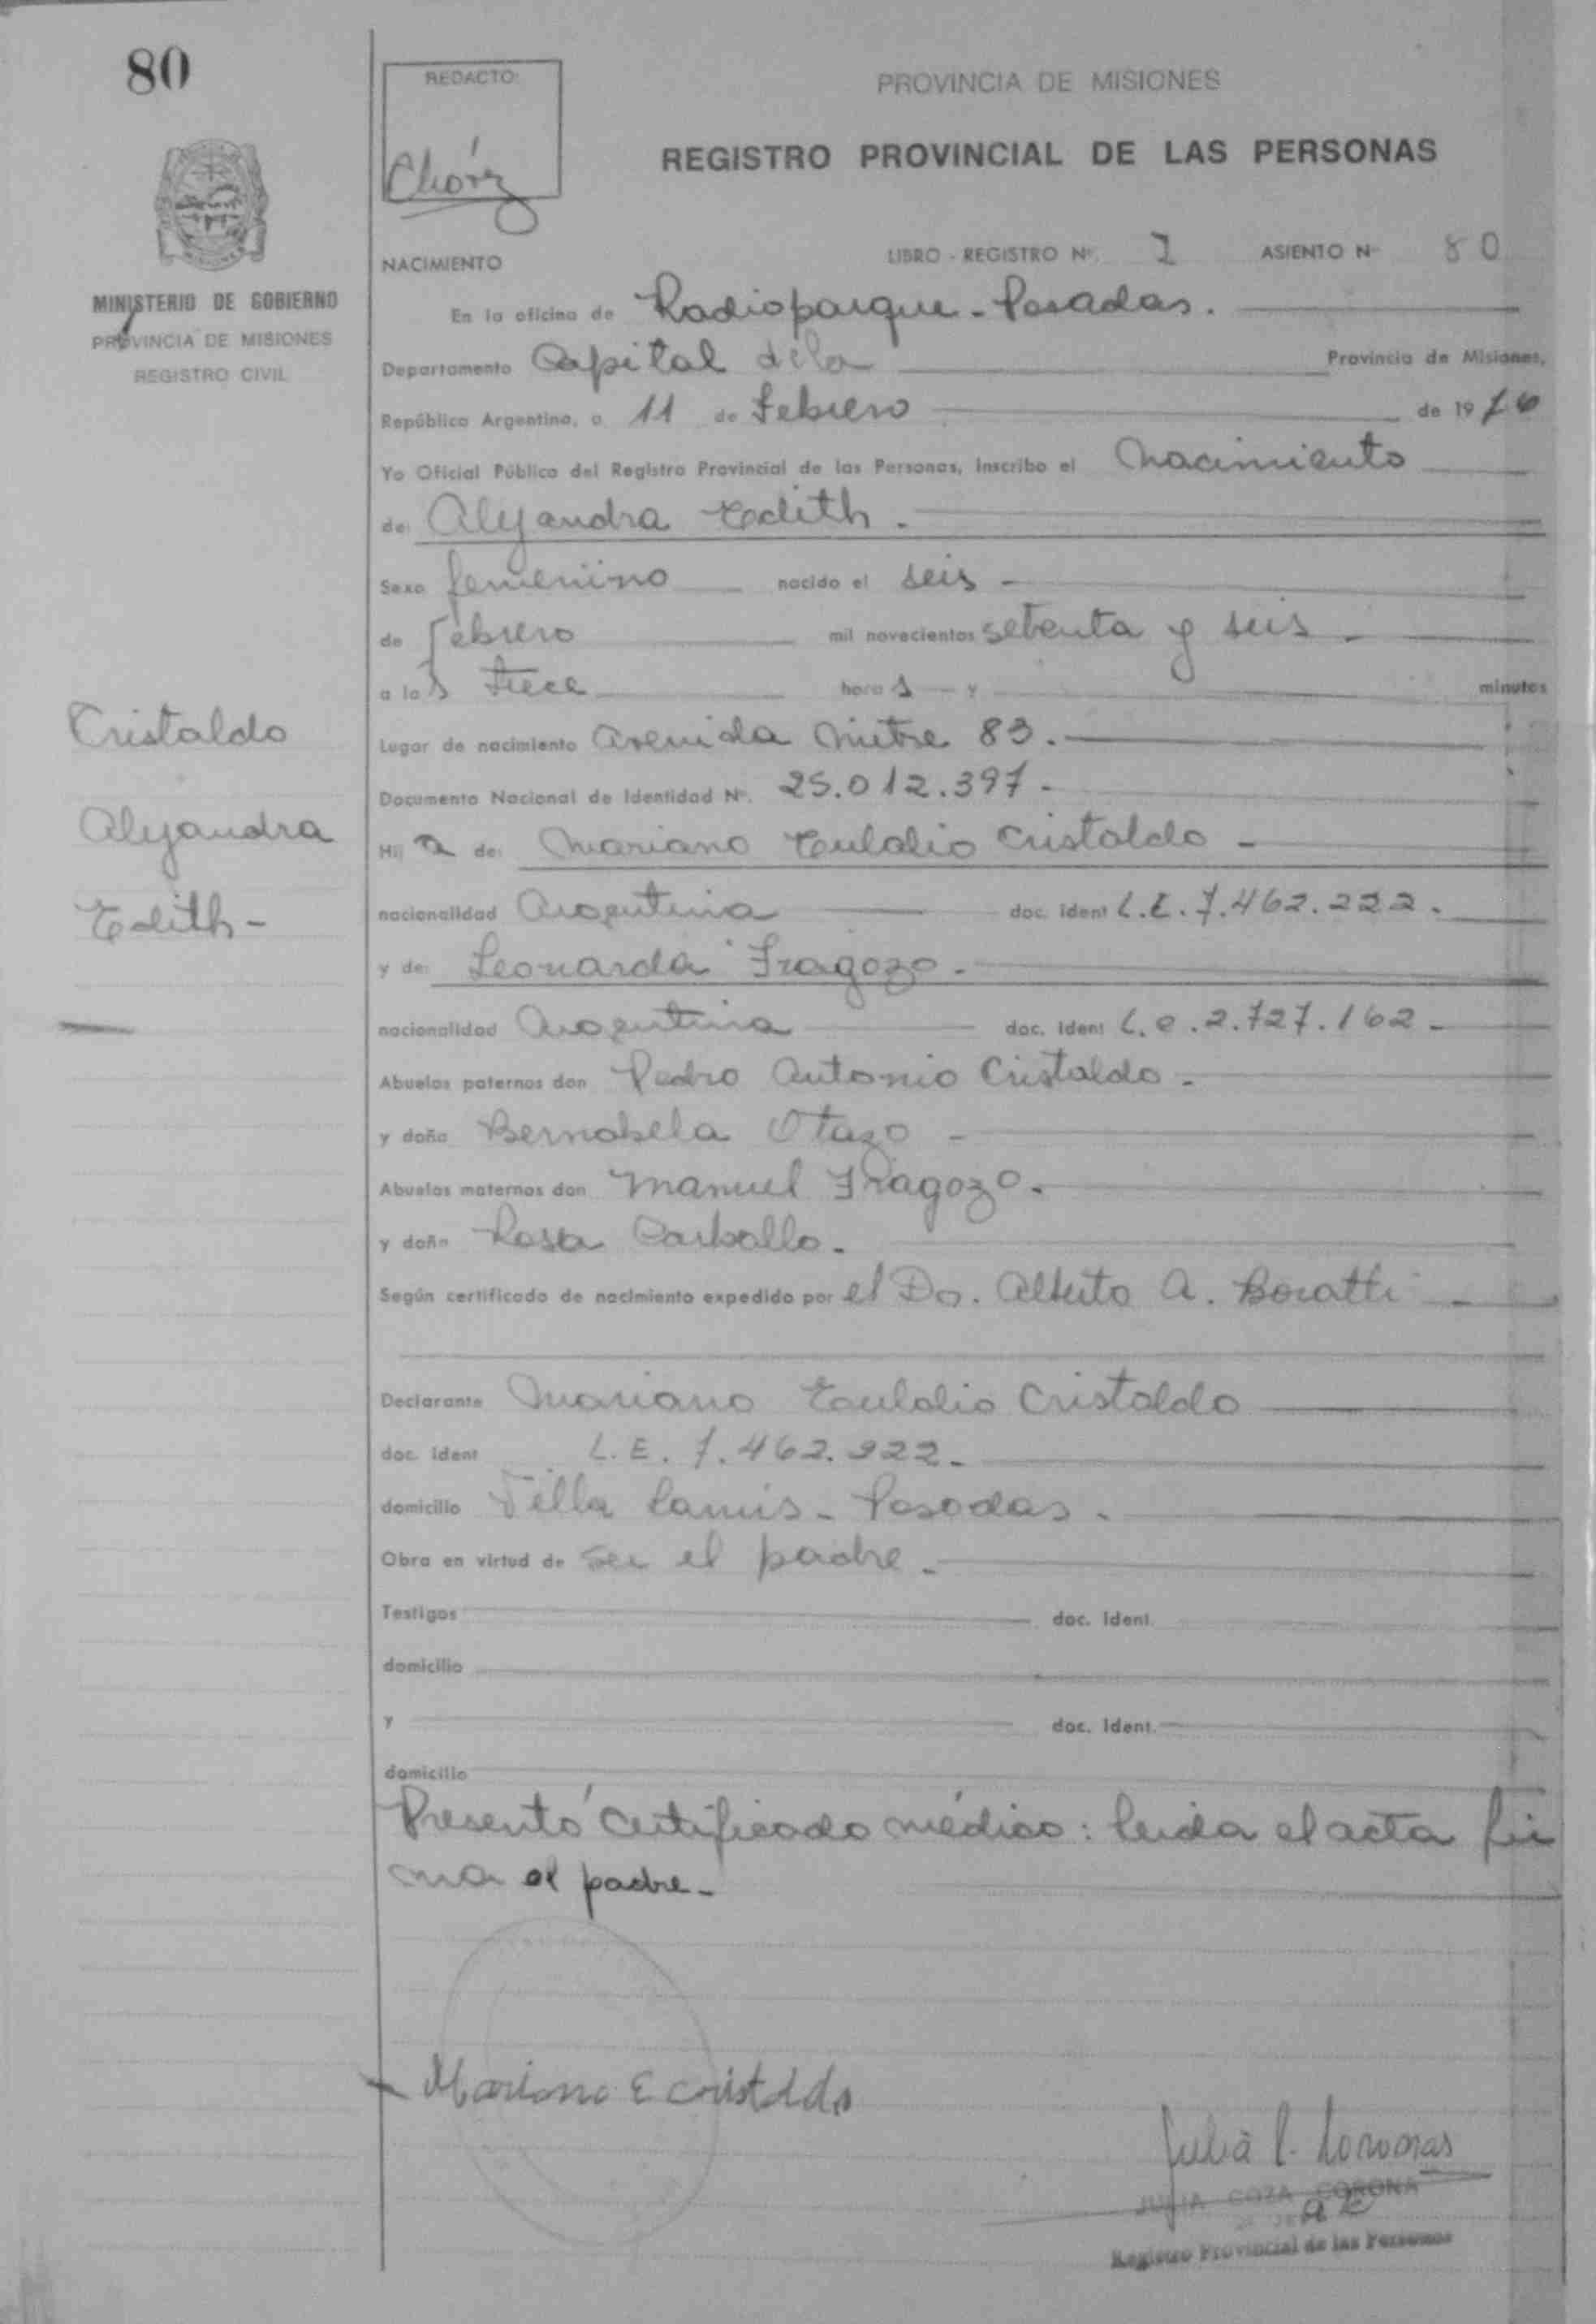 80
REDACTO:
Chávez
PROVINCIA DE MISIONES
REGISTRO PROVINCIAL DE LAS PERSONAS
MINISTERIO DE GOBIERNO
PROVINCIA DE MISIONES
REGISTRO CIVIL
NACIMIENTO
LIBRO - REGISTRO Nº. 1 ASIENTO Nº 80
En la oficina de Radioparque - Posadas.
Departamento Capital de la Provincia de Misiones,
República Argentina, a 11 de Febrero de 1976
Yo Oficial Público del Registro Provincial de las Personas, inscribo el Nacimiento
de: Alejandra Edith.
Sexo femenino nacido el seis -
de Febrero mil novecientos setenta y seis -
a las trece horas y minutos
Lugar de nacimiento Avenida Mitre 83.
Documento Nacional de Identidad Nº. 25.012.397 -
Cristaldo
Alejandra
Edith -
Hija de: Mariano Eulalio Cristaldo -
nacionalidad Argentina doc. ident L.E. 7.462.222.
y de: Leonarda Fragozo.
nacionalidad Argentina doc. ident L.C. 2.727.162 -
Abuelos paternos don Pedro Antonio Cristaldo -
y doña Bernabela Otazo -
Abuelos maternos don Manuel Fragozo.
y doña Rosa Carballo.
Según certificado de nacimiento expedido por el Dr. Alberto A. Boratti -
Declarante Mariano Eulalio Cristaldo
doc. ident L.E. 7.462.922 -
domicilio Villa Lanús - Posadas.
Obra en virtud de ser el padre.
Testigos doc. ident.
domicilio
y doc. ident.
domicilio
Presentó certificado médico: leida el acta fir
ma el padre -
Mariano E Cristaldo
Julia C. Coronas
JULIA COZA CORONA
Registro Provincial de las Personas